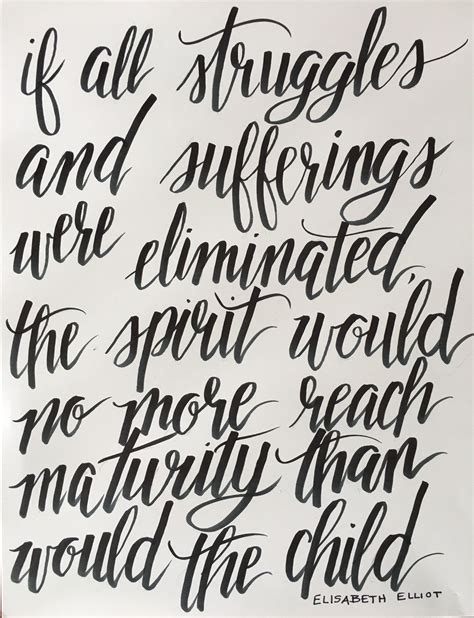 if all struggles
and sufferings
were eliminated,
the spirit would
no more reach
maturity than
would the child
ELISABETH ELLIOT